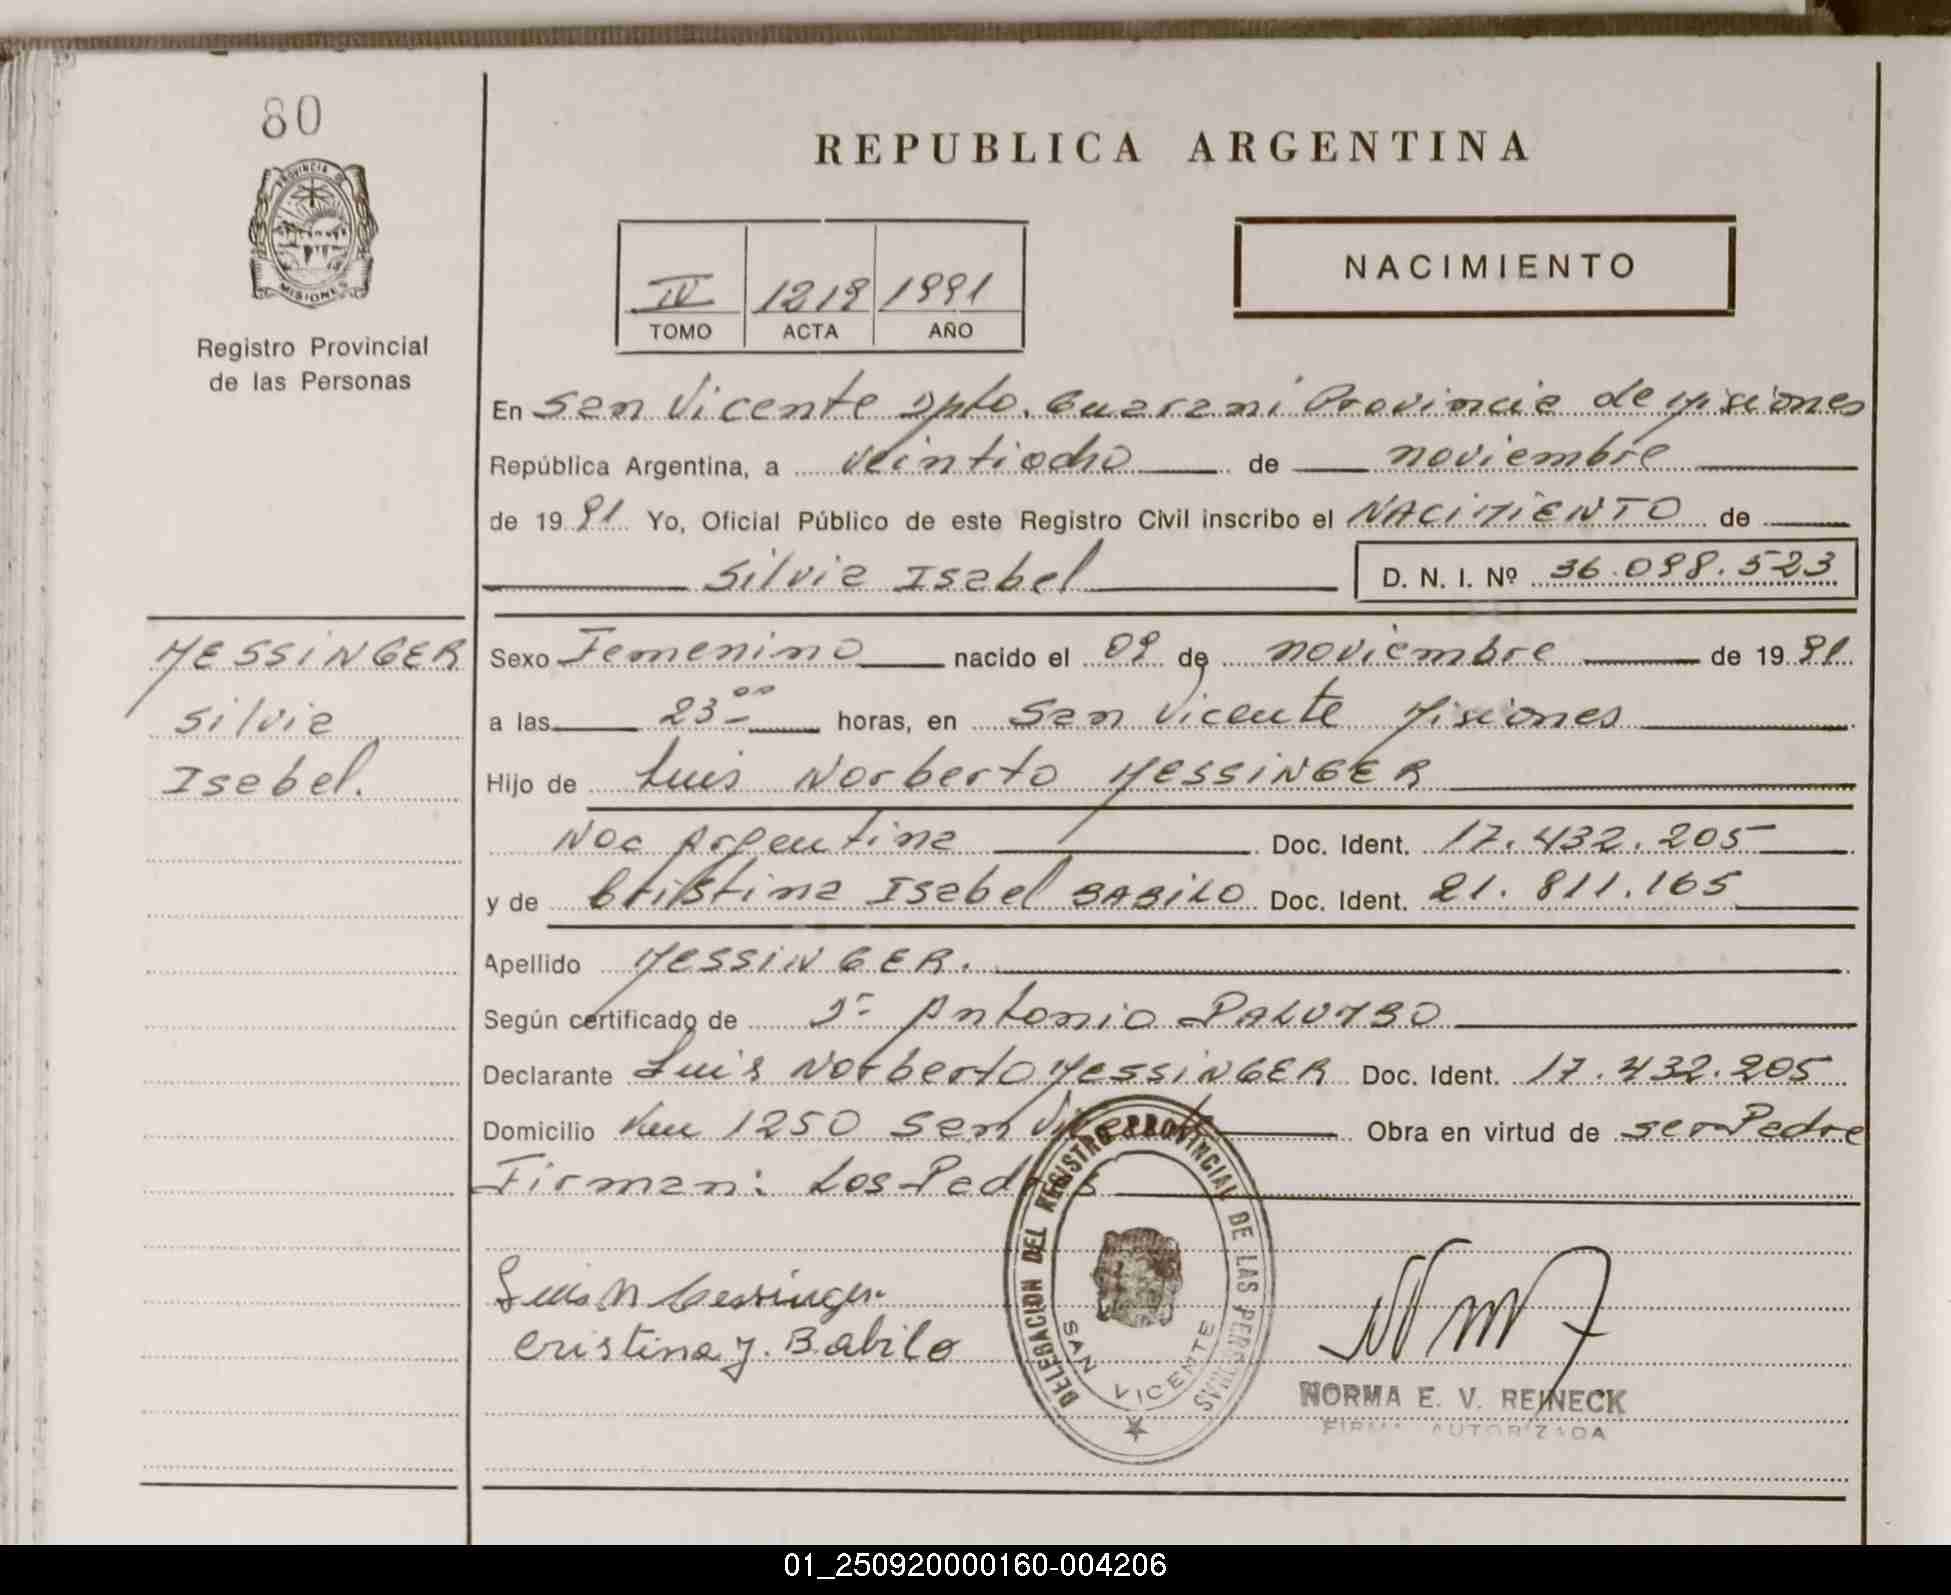 80
PROVINCIA DE
MISIONES
Registro Provincial
de las Personas
REPUBLICA ARGENTINA
NACIMIENTO
IV 1219 1991
TOMO ACTA AÑO
En San Vicente Dpto. Guarani Provincia de Misiones
República Argentina, a veintiocho de noviembre
de 19 91 Yo, Oficial Público de este Registro Civil inscribo el NACIMIENTO de
Silvia Isabel D. N. I. Nº 36.098.523
MESSINGER
Silvia
Isabel.
Sexo Femenino nacido el 09 de noviembre de 19 91
a las 23 00 horas, en San Vicente Misiones
Hijo de Luis Norberto MESSINGER
Nac Argentina Doc. Ident. 17.432.205
y de Cristina Isabel BABILO Doc. Ident. 21.811.165
Apellido MESSINGER.
Según certificado de Dr Antonio PALUMBO
Declarante Luis Norberto MESSINGER Doc. Ident. 17.432.205
Domicilio 1250 San Vicente Obra en virtud de ser Padre
Firman: Los Padres
Luis N Messinger
Cristina I. Babilo
DELEGACION DEL REGISTRO PROVINCIAL DE LAS PERSONAS
SAN VICENTE
NORMA E. V. REINECK
FIRMA AUTORIZADA
01_250920000160-004206